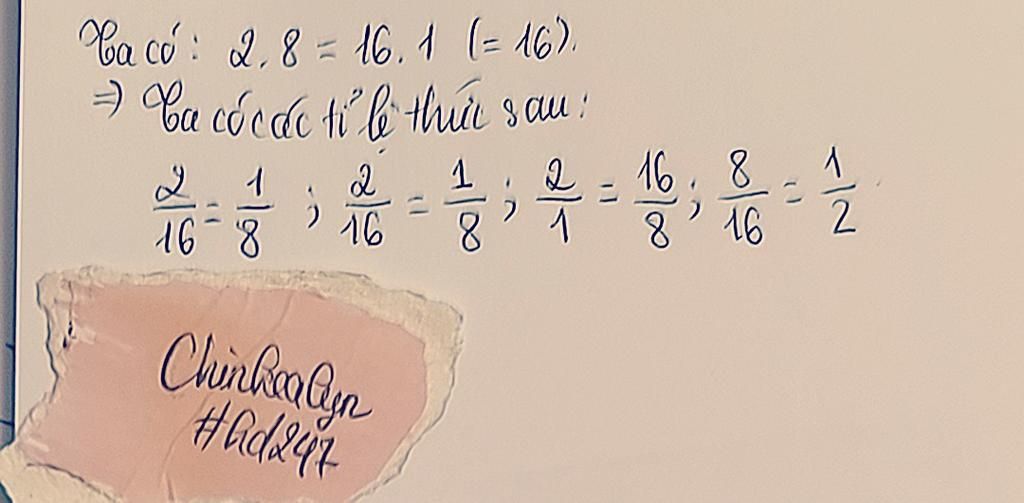 Ta có: 2.8 = 16.1 (= 16).
⇒ Ta có các tỉ lệ thức sau:
2/16 = 1/8 ; 2/16 = 1/8 ; 2/1 = 16/8 ; 8/16 = 1/2
#Ad247